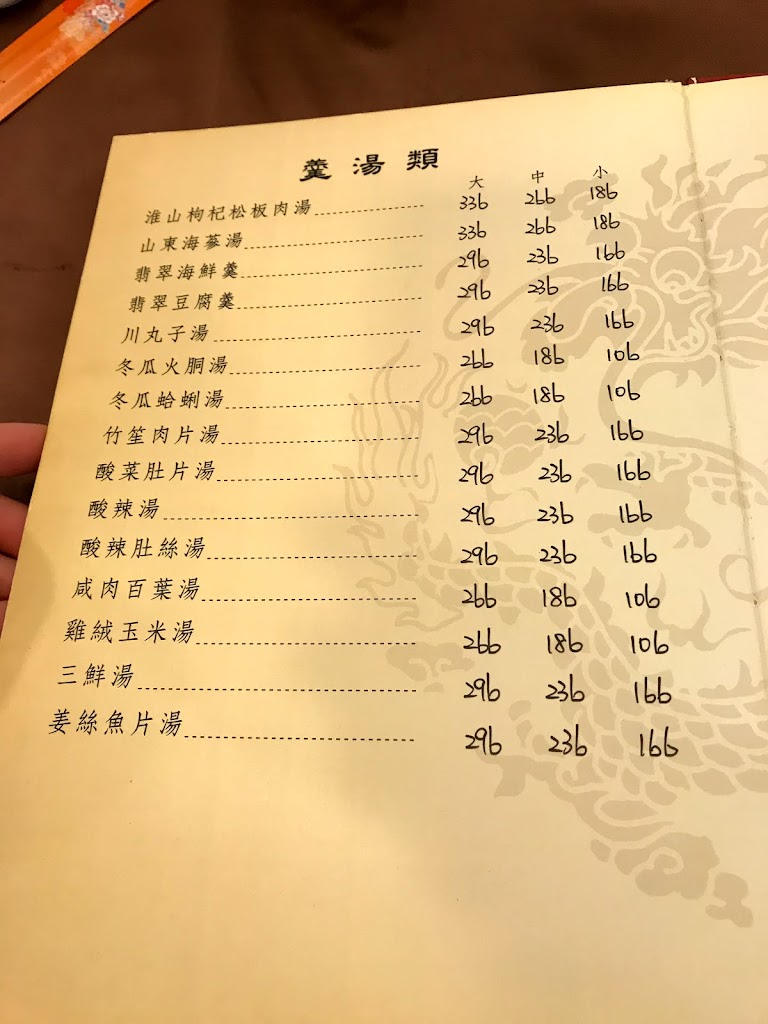 羹湯類
大 中 小
淮山枸杞松板肉湯 336 266 186
山東海蔘湯 336 266 186
翡翠海鮮羹 296 236 166
翡翠豆腐羹 296 236 166
川丸子湯 296 236 166
冬瓜火胴湯 266 186 106
冬瓜蛤蜊湯 266 186 106
竹笙肉片湯 296 236 166
酸菜肚片湯 296 236 166
酸辣湯 296 236 166
酸辣肚絲湯 296 236 166
咸肉百葉湯 266 186 106
雞絨玉米湯 266 186 106
三鮮湯 296 236 166
姜絲魚片湯 296 236 166